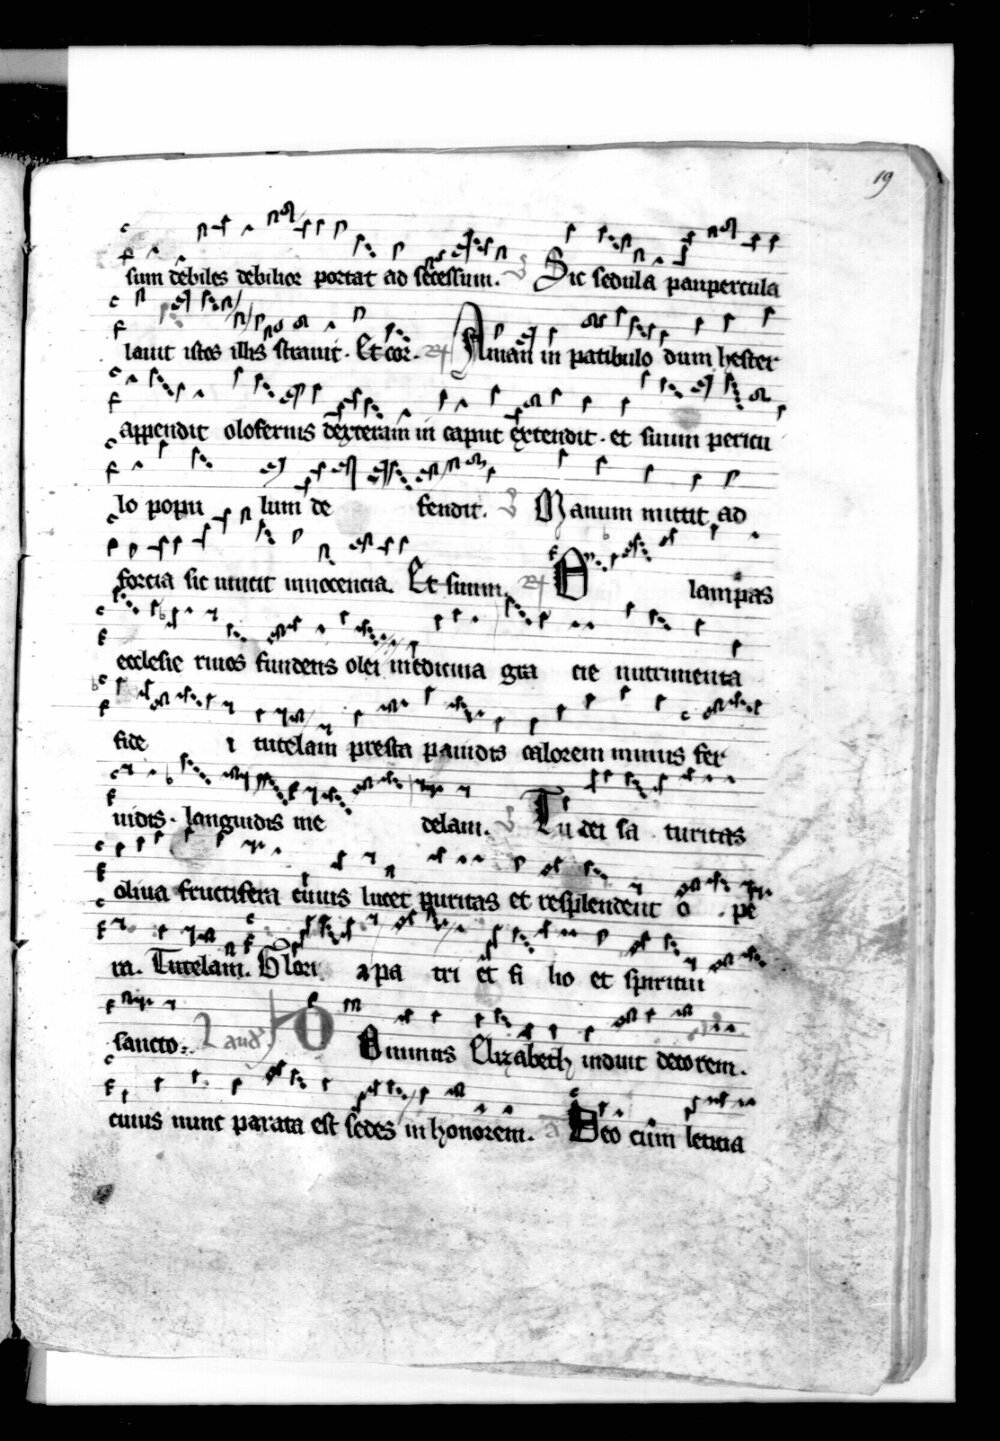 19
sum debiles debilior portat ad secessum. V Sic sedula paupercula
lauit istos illis strauit. Et cor. R Manum in patibulo dum hester
appendit olofernis dexteram in caput extendit. et suum pericu
lo popu lum de fendit. V Manum mittit ad
forcia sic uincit innocencia. Et suum. R O lampas
ecclesie riuos fundens olei medicina gra cie nutrimenta
fide i tutelam presta pauidis calorem minus fer
uidis. languidis me delam. V Tu dei sa turitas
oliua fructifera cuius lucet puritas et resplendent o pe
ra. Tutelam. Glori a pa tri et fi lio et spiritui
sancto. Laud O Elizabeth induit decorem.
cuius nunc parata est sedes in honorem. a Deo cum leticia